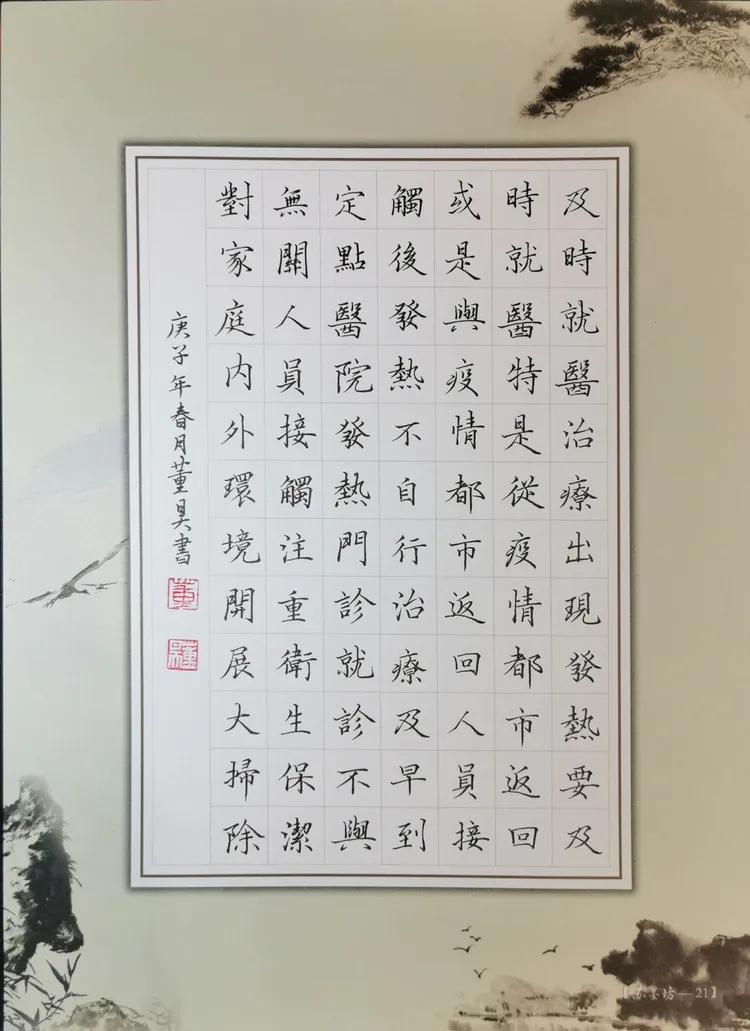 及時就醫治療出現發熱要及
時就醫特是從疫情都市返回
或是與疫情都市返回人員接
觸後發熱不自行治療及早到
定點醫院發熱門診就診不與
無關人員接觸注重衛生保潔
對家庭內外環境開展大掃除
庚子年春月董昊書